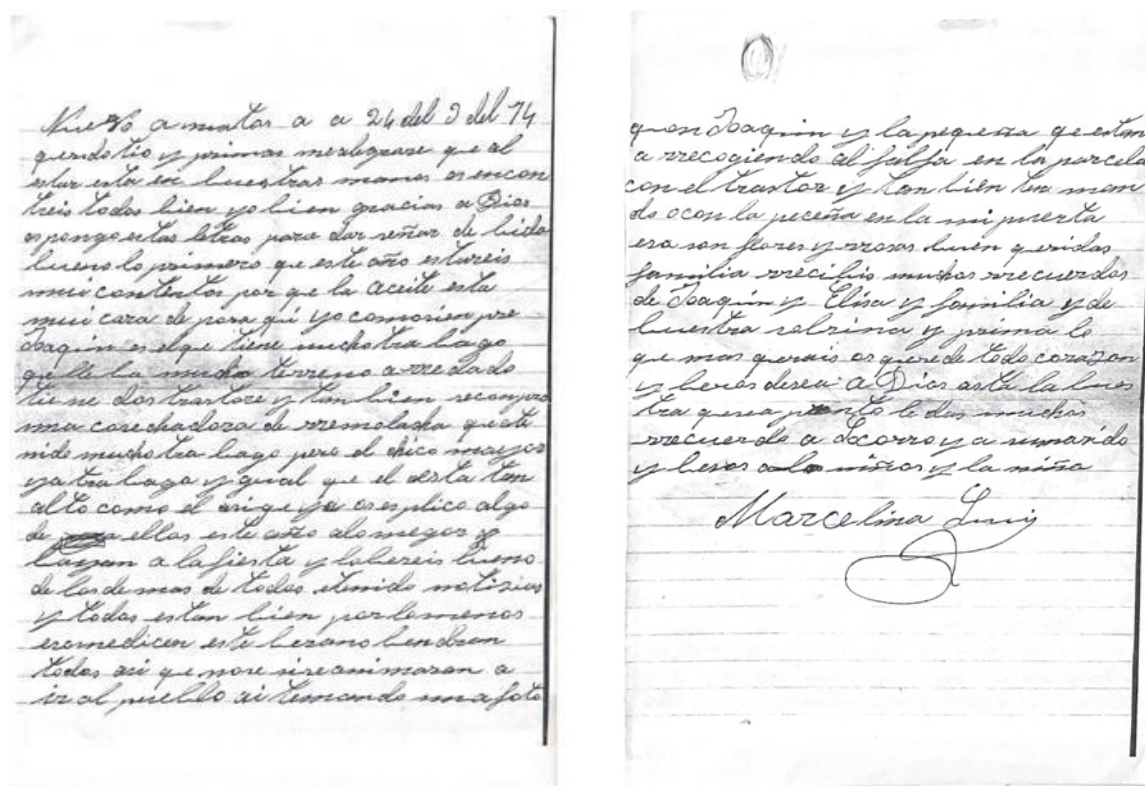 Nuevo amatos a a 24 del 3 del 74
queridotio y primas mealegrare que al
estar esta en buestras manos os encon
treis todos bien yo bien gracias a Dios
os pongo estas letras para dar señar de bida
bueno lo primero que este año estareis
mui contentos por que la aceite esta
mui cara de por a qui yo como sien pre
Joaquin es el que tiene mucho tra bago
que lle la mucho terreno a rredado
tiene dos trastore y tan bien secompro
una cosechadora de rremolacha que a te
nido mucho tra bago pero el chico mayor
ya tra baga y gual que el esta tan
alto como el asi que ya os esplico algo
de ellos este año alo megor
bayan a la fiesta y labereis bueno
de los demas de todos etenido notisias
y todos estan bien por lo menos
eso me dicen este berano bendran
todos asi que nose si se animaran a
ir al pueblo ai temando una foto
quon Joaquin y la pequeña qe estan
a rrecogiendo al falfa en la parcela
con el trastor y tan bién ten man
do ocon la peceña en la mi puerta
esa son flores y rrosas buen queridos
familia rrecibis muchos rrecuerdos
de Joaquin y Elisa y familia y de
buestra sobrina y prima lo
que mas querais os quere de todo corazon
y beros desea a Dios asta la bues
tra quesea pronto le das muchos
rrecuerdo a Socorro y a sumarido
y besos alo niños y la niña
Marcelina Luis